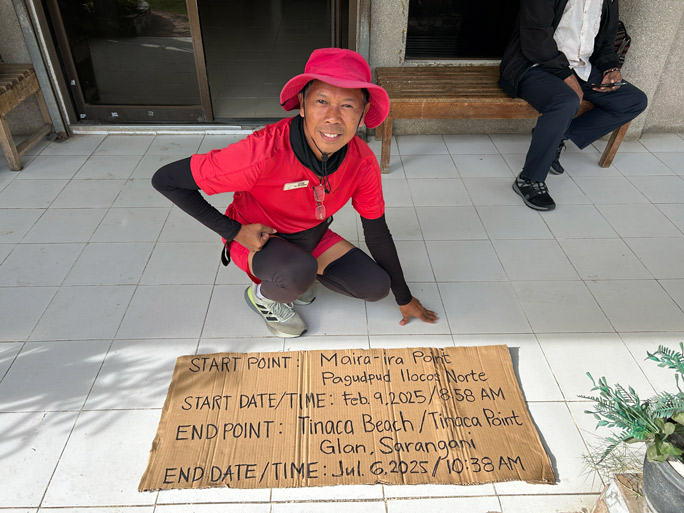 START POINT: Maira-ira Point
Pagudpud Ilocos Norte
START DATE/TIME: Feb. 9, 2025/8:58 AM
END POINT: Tinaca Beach/Tinaca Point
Glan, Sarangani
END DATE/TIME: Jul. 6, 2025/10:38 AM